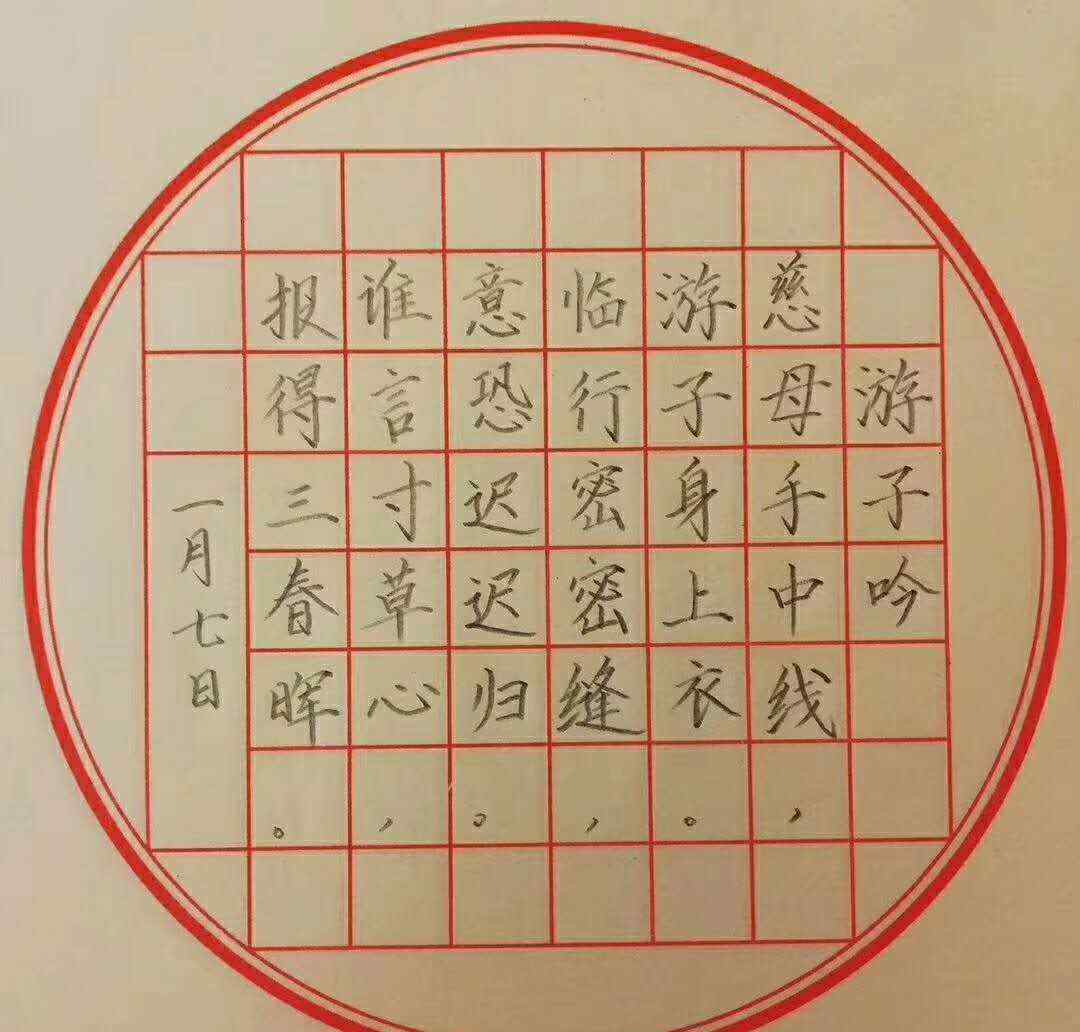 游子吟
慈母手中线，
游子身上衣。
临行密密缝，
意恐迟迟归。
谁言寸草心，
报得三春晖。
一月七日